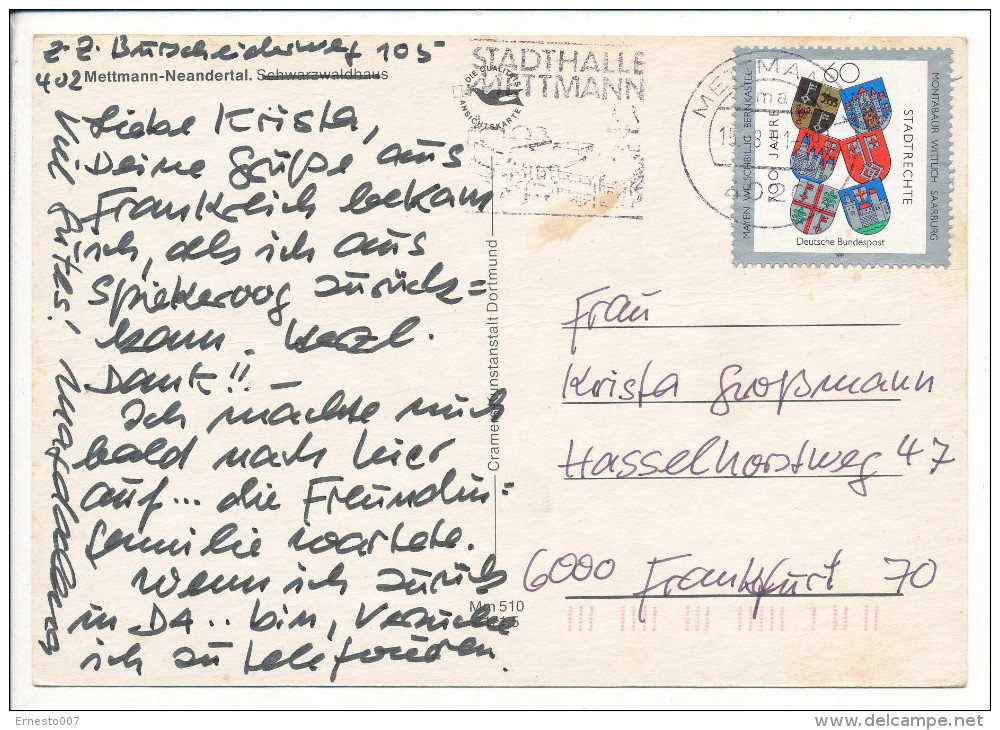 z. Z. Burscheiderweg 105
402 Mettmann-Neandertal. Schwarzwaldhaus
Liebe Krista,
Deine Grüße aus
Frankreich bekam
ich, als ich aus
Spiekeroog zurück=
kam. Herzl.
Dank!!
Ich machte mich
bald nach hier
auf... die Freundin=
familie wartete.
Wenn ich zurück
in DA.. bin, versuche
ich zu telefonieren.
Viel Gutes!
DIE QUALITÄTS
ANSICHTSKARTE
Cramers Kunstanstalt Dortmund
Mm 510
STADTHALLE
METTMANN
METTMANN
60
700 JAHRE
STADTRECHTE
MAYEN WELSCHBILLIG BERNKASTEL
MONTABAUR WITTLICH SAARBURG
Deutsche Bundespost
1991
Frau
Krista Großmann
Hasselhorstweg 47
6000 Frankfurt 70
Ernesto007
delcampe.net